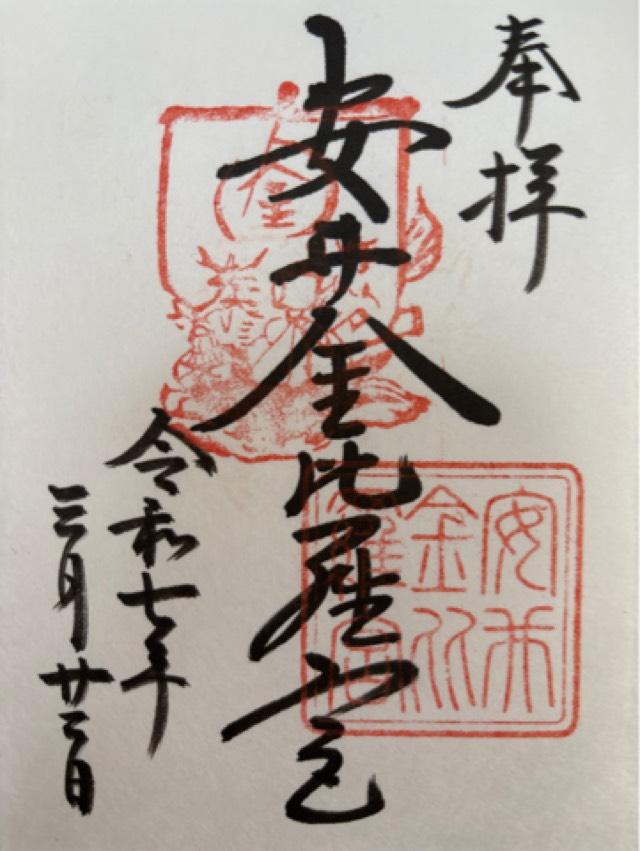 奉拝
安井金比羅宮
令和七年
三月廿二日
金
安井
金比
羅宮